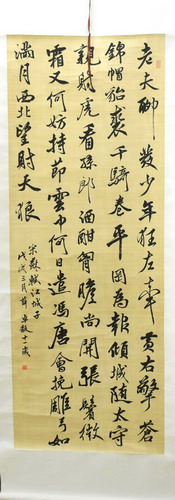 老夫聊發少年狂左牽黃右擎蒼
錦帽貂裘千騎卷平岡為報傾城隨太守
親射虎看孫郎酒酣胸膽尚開張鬢微
霜又何妨持節雲中何日遣馮唐會挽雕弓如
滿月西北望射天狼
宋蘇軾江城子
戊戌三月薛卓十一歲